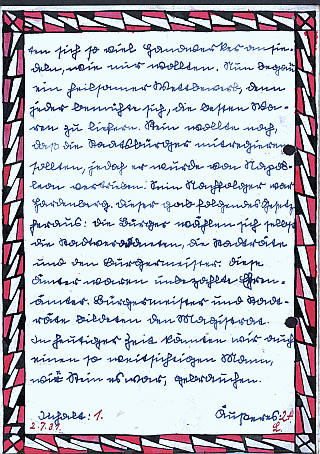 ten sich so viel Handwerker ansie-
deln, wie nur wollten. Nun begann
ein heilsamer Wettbewerb, denn
jeder bemühte sich, die besten Wa-
ren zu liefern. Stein wollte noch,
daß die Stadtbürger mitregieren
sollten, jedoch er wurde von Napo-
leon vertrieben. Sein Nachfolger war
Hardenberg. Dieser gab folgendes Gesetz
heraus: die Bürger wählen sich selbst
die Stadtverordneten, die Stadträte
und den Bürgermeister. Diese
Ämter waren unbezahlte Ehren-
ämter. Bürgermeister und Stadt-
räte bildeten den Magistrat.
In heutiger Zeit könnten wir auch
einen so weitsichtigen Mann,
wie Stein es war, gebrauchen.
Inhalt: 1. Äußeres: 2
2.7.39. L.